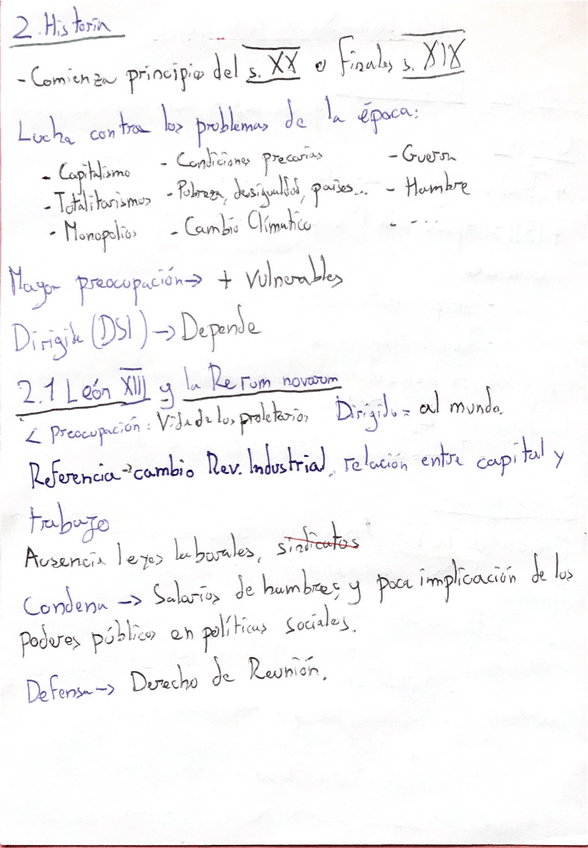 2. Historia
- Comienza principio del s. XX o finales s. XIX
Lucha contra los problemas de la época:
- Capitalismo - Condiciones precarias - Guerra
- Totalitarismos - Pobreza, desigualdad, países... - Hambre
- Monopolios - Cambio Climático - ...
Mayor preocupación → + Vulnerables
Dirigida (DSI) → Depende
2.1 León XIII y la Rerum novarum
< Preocupación: Vida de los proletarios Dirigido = al mundo.
Referencia → cambio Rev. Industrial, relación entre capital y
trabajo
Ausencia leyes laborales, sindicatos
Condena → Salarios de hambres; y poca implicación de los
poderes públicos en políticas sociales.
Defensa → Derecho de Reunión.